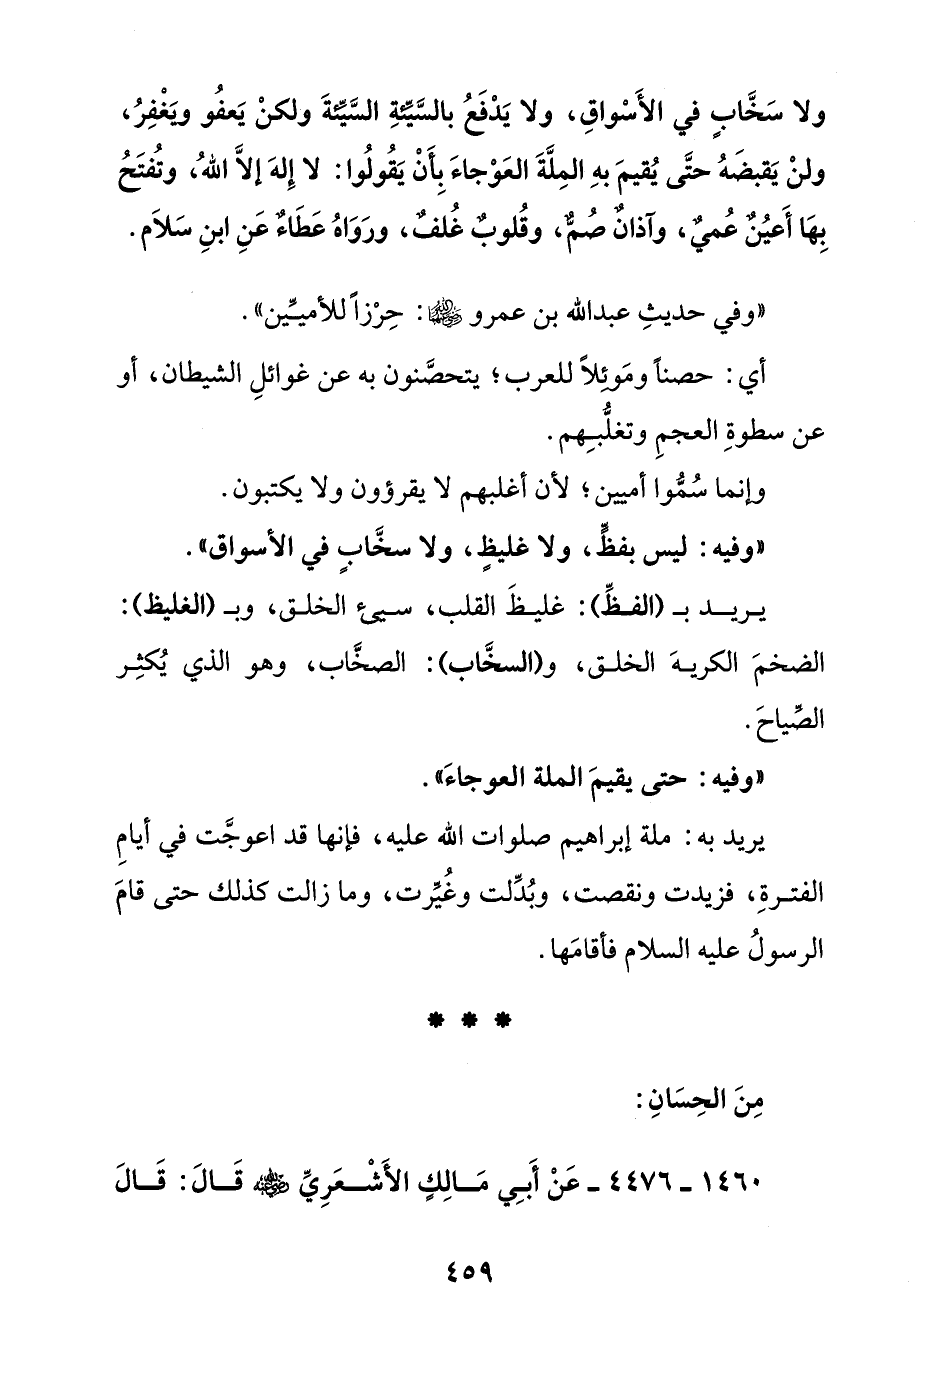 ولا سَخَّابٍ في الأَسْواقِ، ولا يَدْفَعُ بالسَّيِّئةِ السَّيِّئةَ ولكنْ يَعفُو ويَغْفِرُ،
ولنْ يَقبضَهُ حتَّى يُقيمَ بهِ المِلَّةَ العَوْجاءَ بِأَنْ يَقُولُوا: لا إِلهَ إلاَّ اللهُ، وتُفتَحُ
بِهَا أَعيُنٌ عُميٌ، وآذانٌ صُمٌّ، وقُلوبٌ غُلفٌ، ورَوَاهُ عَطَاءٌ عَنِ ابنِ سَلاَم.
«وفي حديثِ عبدالله بن عمرو ﵁: حِرْزاً للأميـِّين».
أي: حصناً ومَوئِلاً للعرب؛ يتحصَّنون به عن غوائلِ الشيطان، أو
عن سطوةِ العجمِ وتغلُّبـِهم.
وإنما سُمُّوا أميين؛ لأن أغلبهم لا يقرؤون ولا يكتبون.
«وفيه: ليس بفظٍّ، ولا غليظٍ، ولا سخَّابٍ في الأسواق».
يـريـــد بـ (الفـظِّ): غليظَ القلب، سـيئ الخلـق، وبـ (الغليظ):
الضخمَ الكريـهَ الخلـق، و(السخَّاب): الصخَّاب، وهو الذي يُكثِـر
الصِّياحَ.
«وفيه: حتى يقيمَ الملة العوجاءَ».
يريد به: ملة إبراهيم صلوات الله عليه، فإنها قد اعوجَّت في أيامِ
الفتـرةِ، فزيدت ونقصت، وبُدِّلت وغُيِّرت، وما زالت كذلك حتى قامَ
الرسولُ عليه السلام فأقامَها.
* * *
مِنَ الحِسَانِ:
١٤٦٠ ـ ٤٤٧٦ ـ عَنْ أَبـِي مَـالِكٍ الأَشْـعَرِيِّ ﵁ قَـالَ: قَـالَ
٤٥٩